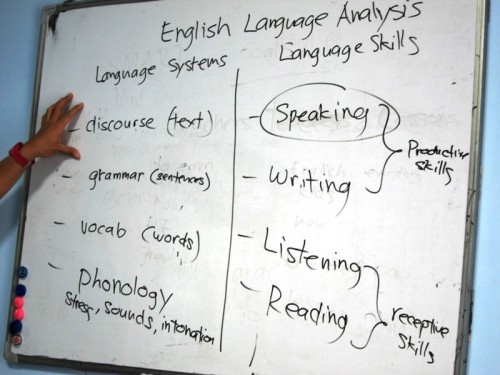 English Language Analysis
Language Systems
- discourse (text)
- grammar (sentences)
- vocab (words)
- Phonology
stress, sounds, intonation
Language Skills
- Speaking
- Writing
Productive
Skills
- Listening
- Reading
receptive
Skills